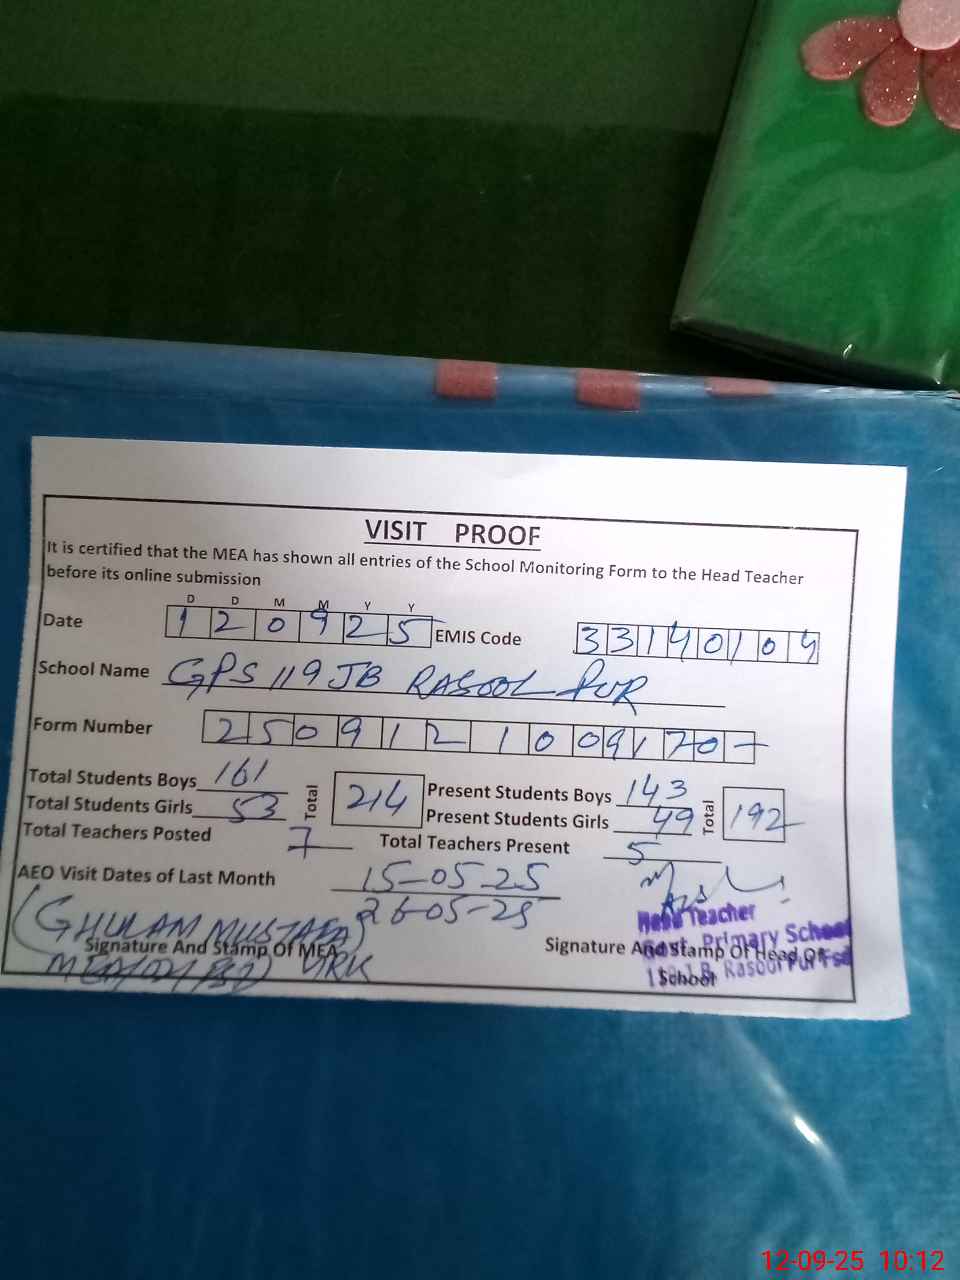 VISIT PROOF
It is certified that the MEA has shown all entries of the School Monitoring Form to the Head Teacher
before its online submission
D D M M Y Y
Date 1 2 0 9 2 5 EMIS Code 3 3 1 4 0 1 0 4
School Name GPS 119 JB RASOOL PUR
Form Number 2 5 0 9 1 2 1 0 0 9 1 7 0 -
Total Students Boys 161 Total 214 Present Students Boys 143 Total 192
Total Students Girls 53 Present Students Girls 49
Total Teachers Posted 7 Total Teachers Present 5
AEO Visit Dates of Last Month 15-05-25
26-05-25
(GHULAM MUSTAFA)
Head Teacher
Signature And Stamp Of MEA
Signature And Stamp Of Head Of
School
Govt. Primary School
J.B. Rasool Pur Fsd
MEA VIRK
12-09-25 10:12